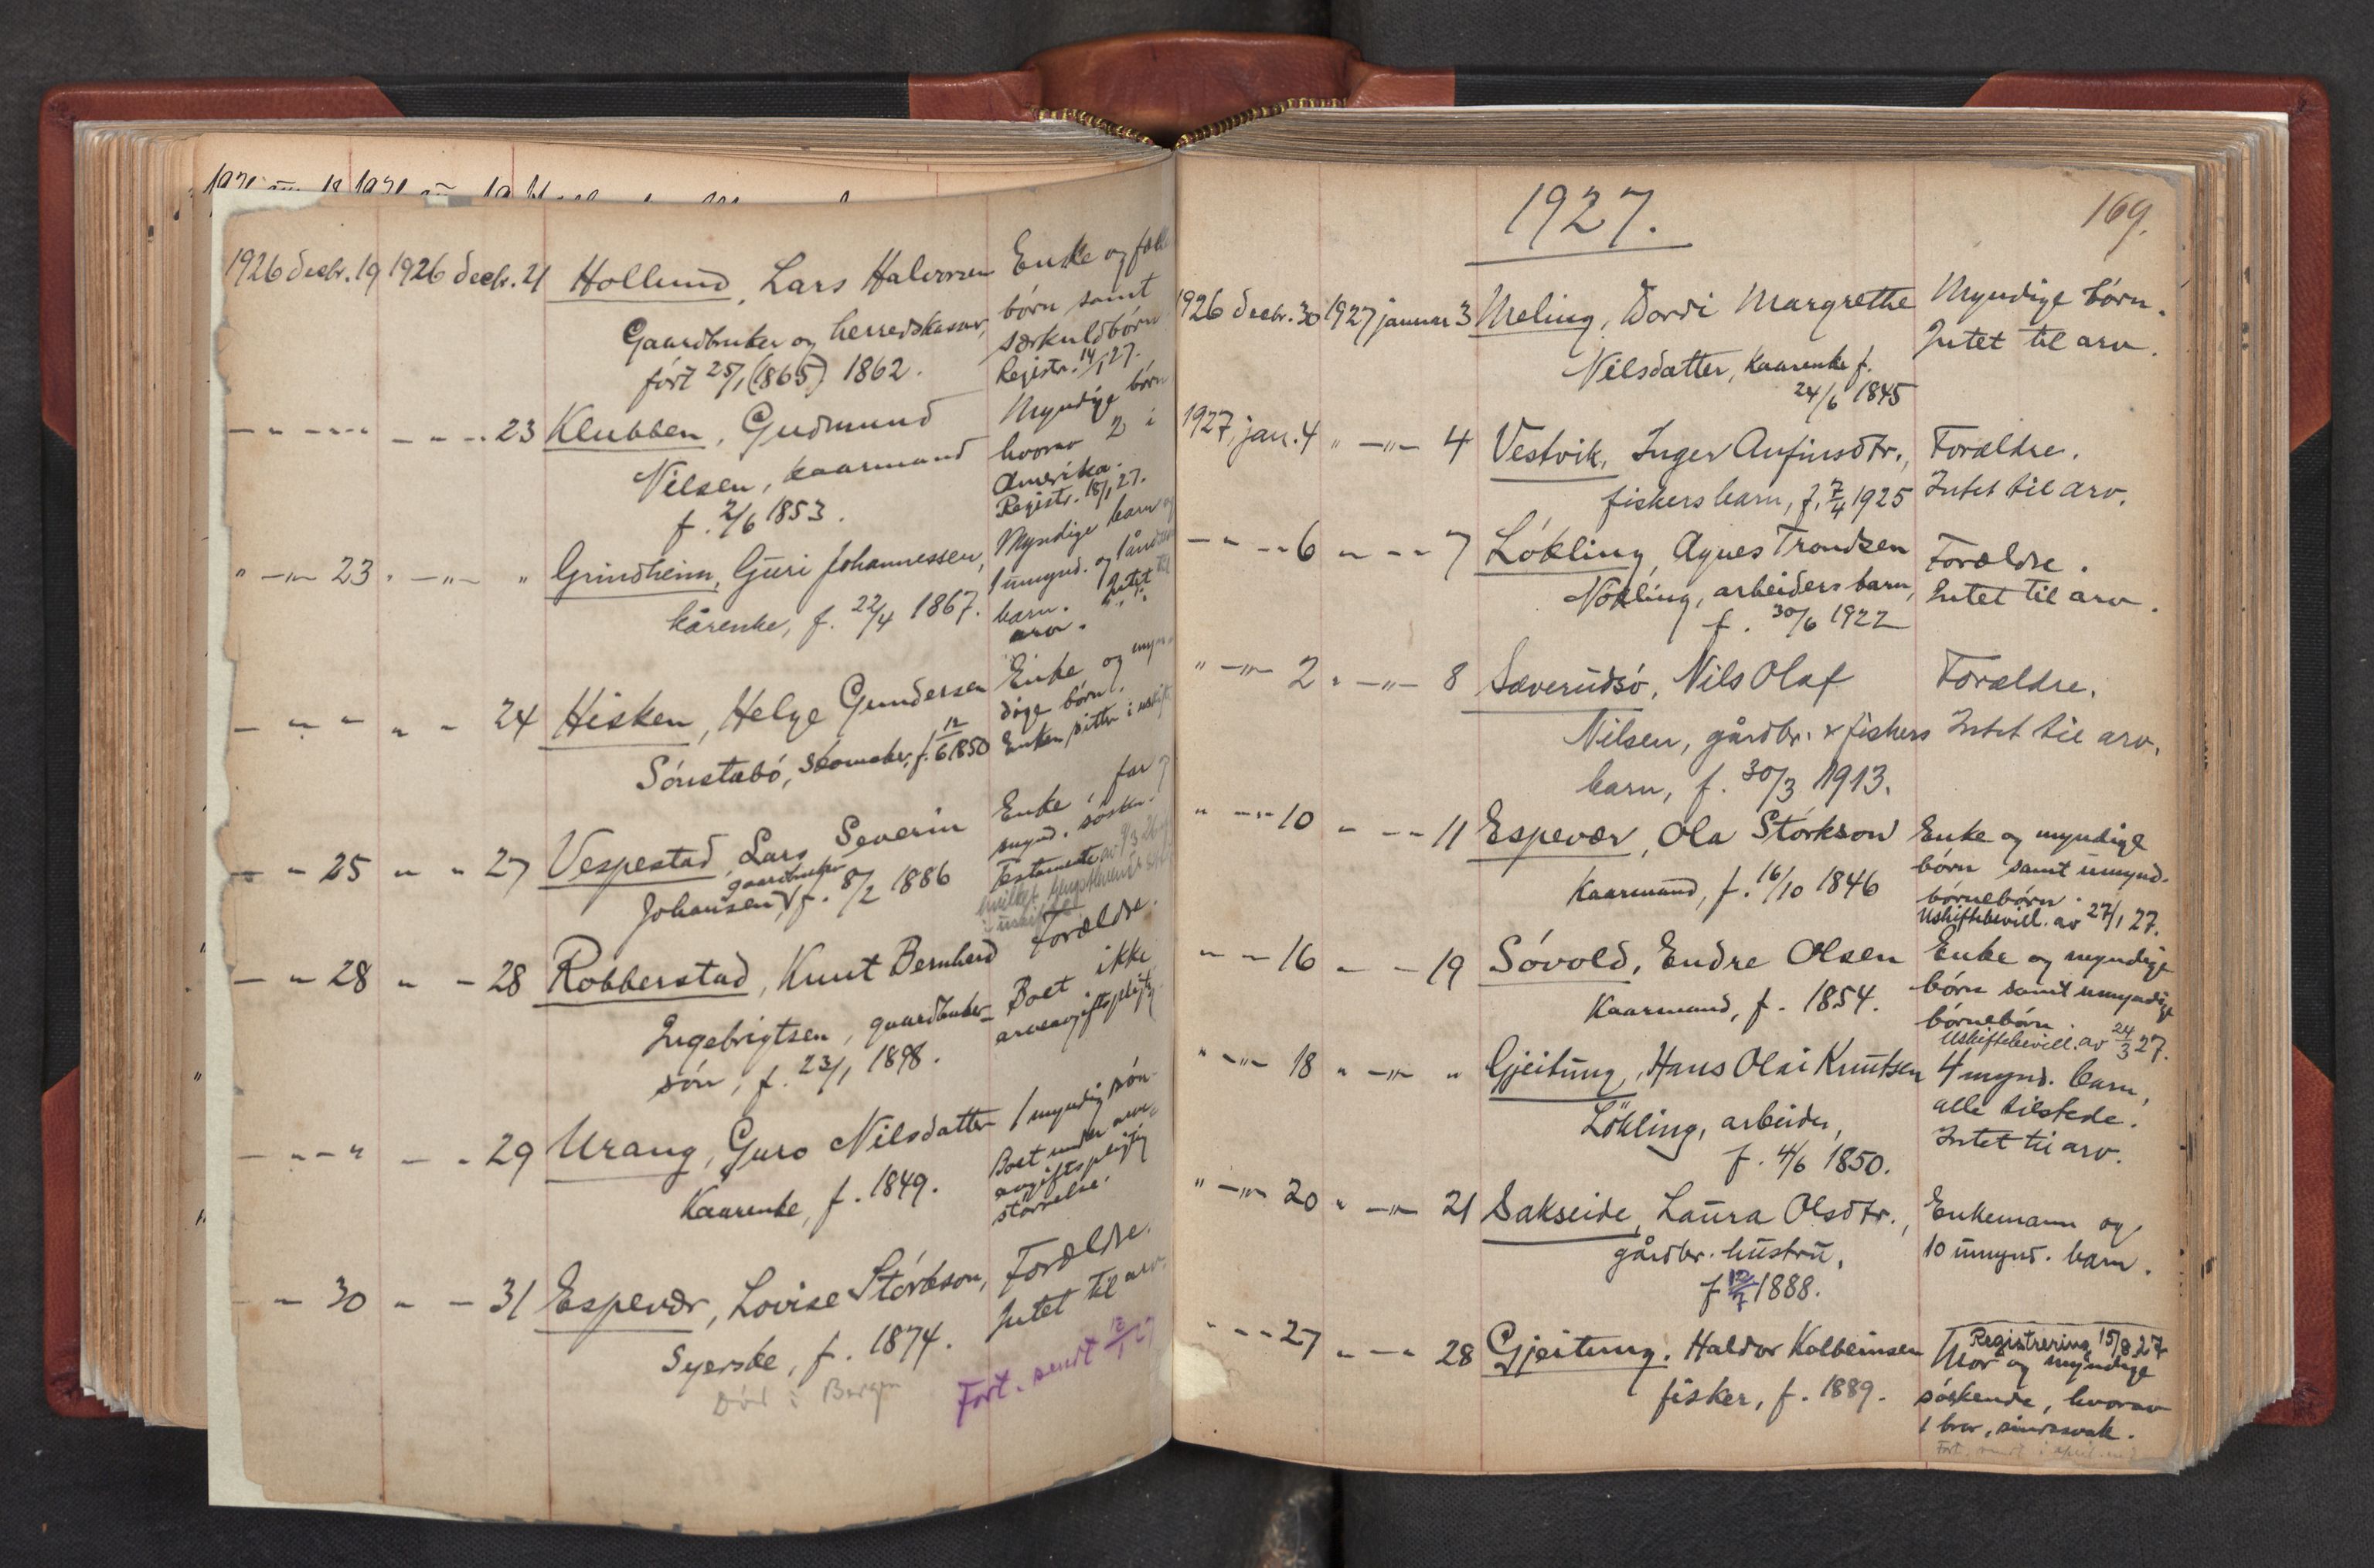 1926 decbr. 19 1926 decb. 21 Hollund, Lars Halvorsen Enke og
Gaardbruker og herredskasser, børn samt
født 25/1 (1865) 1862. særkuldbørn
Registr. 14/1 27.
23 Klubben, Gudmund Myndige børn
Nilsen, kaarmand hvorav 2 i
f. 2/6 1853. Amerika.
Registr. 18/1 27.
" —"— 23 " —"— " Grindheim, Guri Johannessen, Myndige barn og
kårenke, f. 22/4 1867. 1 umynd. og
barn. Intet til
arv.
24 Hisken, Helge Gundersen Enke og myn-
Sønstabø, Skomaker, f. 12/6 1850 dige børn.
Enken sitter i uskift
— " 25 " " 27 Vespestad, Lars Severin Enke, far
gaardbruker mynd. søsk.
Johansen, f. 8/2 1886 Testamente av
— " 28 " — 28 Robberstad, Knut Bernhard Forældre.
Ingebrigtsen, gaardbruker- Boet ikke
søn, f. 23/1 1898. arveavgiftspligtig
— " — " — " 29 Urang, Guro Nilsdatter 1 myndig søn.
Kaarenke, f. 1849. Boet under arve-
avgiftspligtig
størrelse.
— " 30 " — 31 Espevær, Lovise Størkson, Forældre.
Syerske, f. 1874. Intet til arv.
Død i Bergen Fort. sendt
1927.
169.
1926 decbr. 30 1927 januar 3 Meling, Dordi Margrethe Myndige børn.
Nilsdatter, kaarenke f. Intet til arv.
24/6 1845
1927, jan. 4 " —"— 4 Vestvik, Inger Anfinsdtr., Forældre.
fiskers barn, f. 7/4 1925 Intet til arv.
— " — 6 " — — 7 Løkling, Agnes Trondsen Forældre.
Nökling, arbeiders barn, Intet til arv.
f. 30/6 1922
" —"— 2 " —"— 8 Sæverudsø, Nils Olaf Forældre.
Nilsen, gårdbr. & fiskers Intet til arv.
barn, f. 30/3 1913.
" —"— 10 " — — 11 Espevær, Ola Størkson Enke og myndige
Kaarmand, f. 16/10 1846 børn samt umynd.
børnebørn.
Uskiftebevill. av 27/1 27.
" — 16 " — 19 Søvold, Endre Olsen Enke og myndige
Kaarmand, f. 1854. børn samt umyndige
børnebørn.
Uskiftebevill. av 24/3 27.
" —"— 18 " —"— " Gjeitung, Hans Olai Knutsen 4 mynd. barn,
Løkling, arbeider, alle tilstede.
f. 4/6 1850. Intet til arv.
" —"— 20 " —"— 21 Sakseide, Laura Olsdtr., Enkemann og
gårdbr. hustru, 10 umynd. barn.
f 1888.
— " — 27 " — " 28 Gjeitung. Haldor Kolbeinsen Registrering 15/8 27
fisker, f. 1889. Mor og myndige
søskende, hvorav
1 bror, sindssvak.